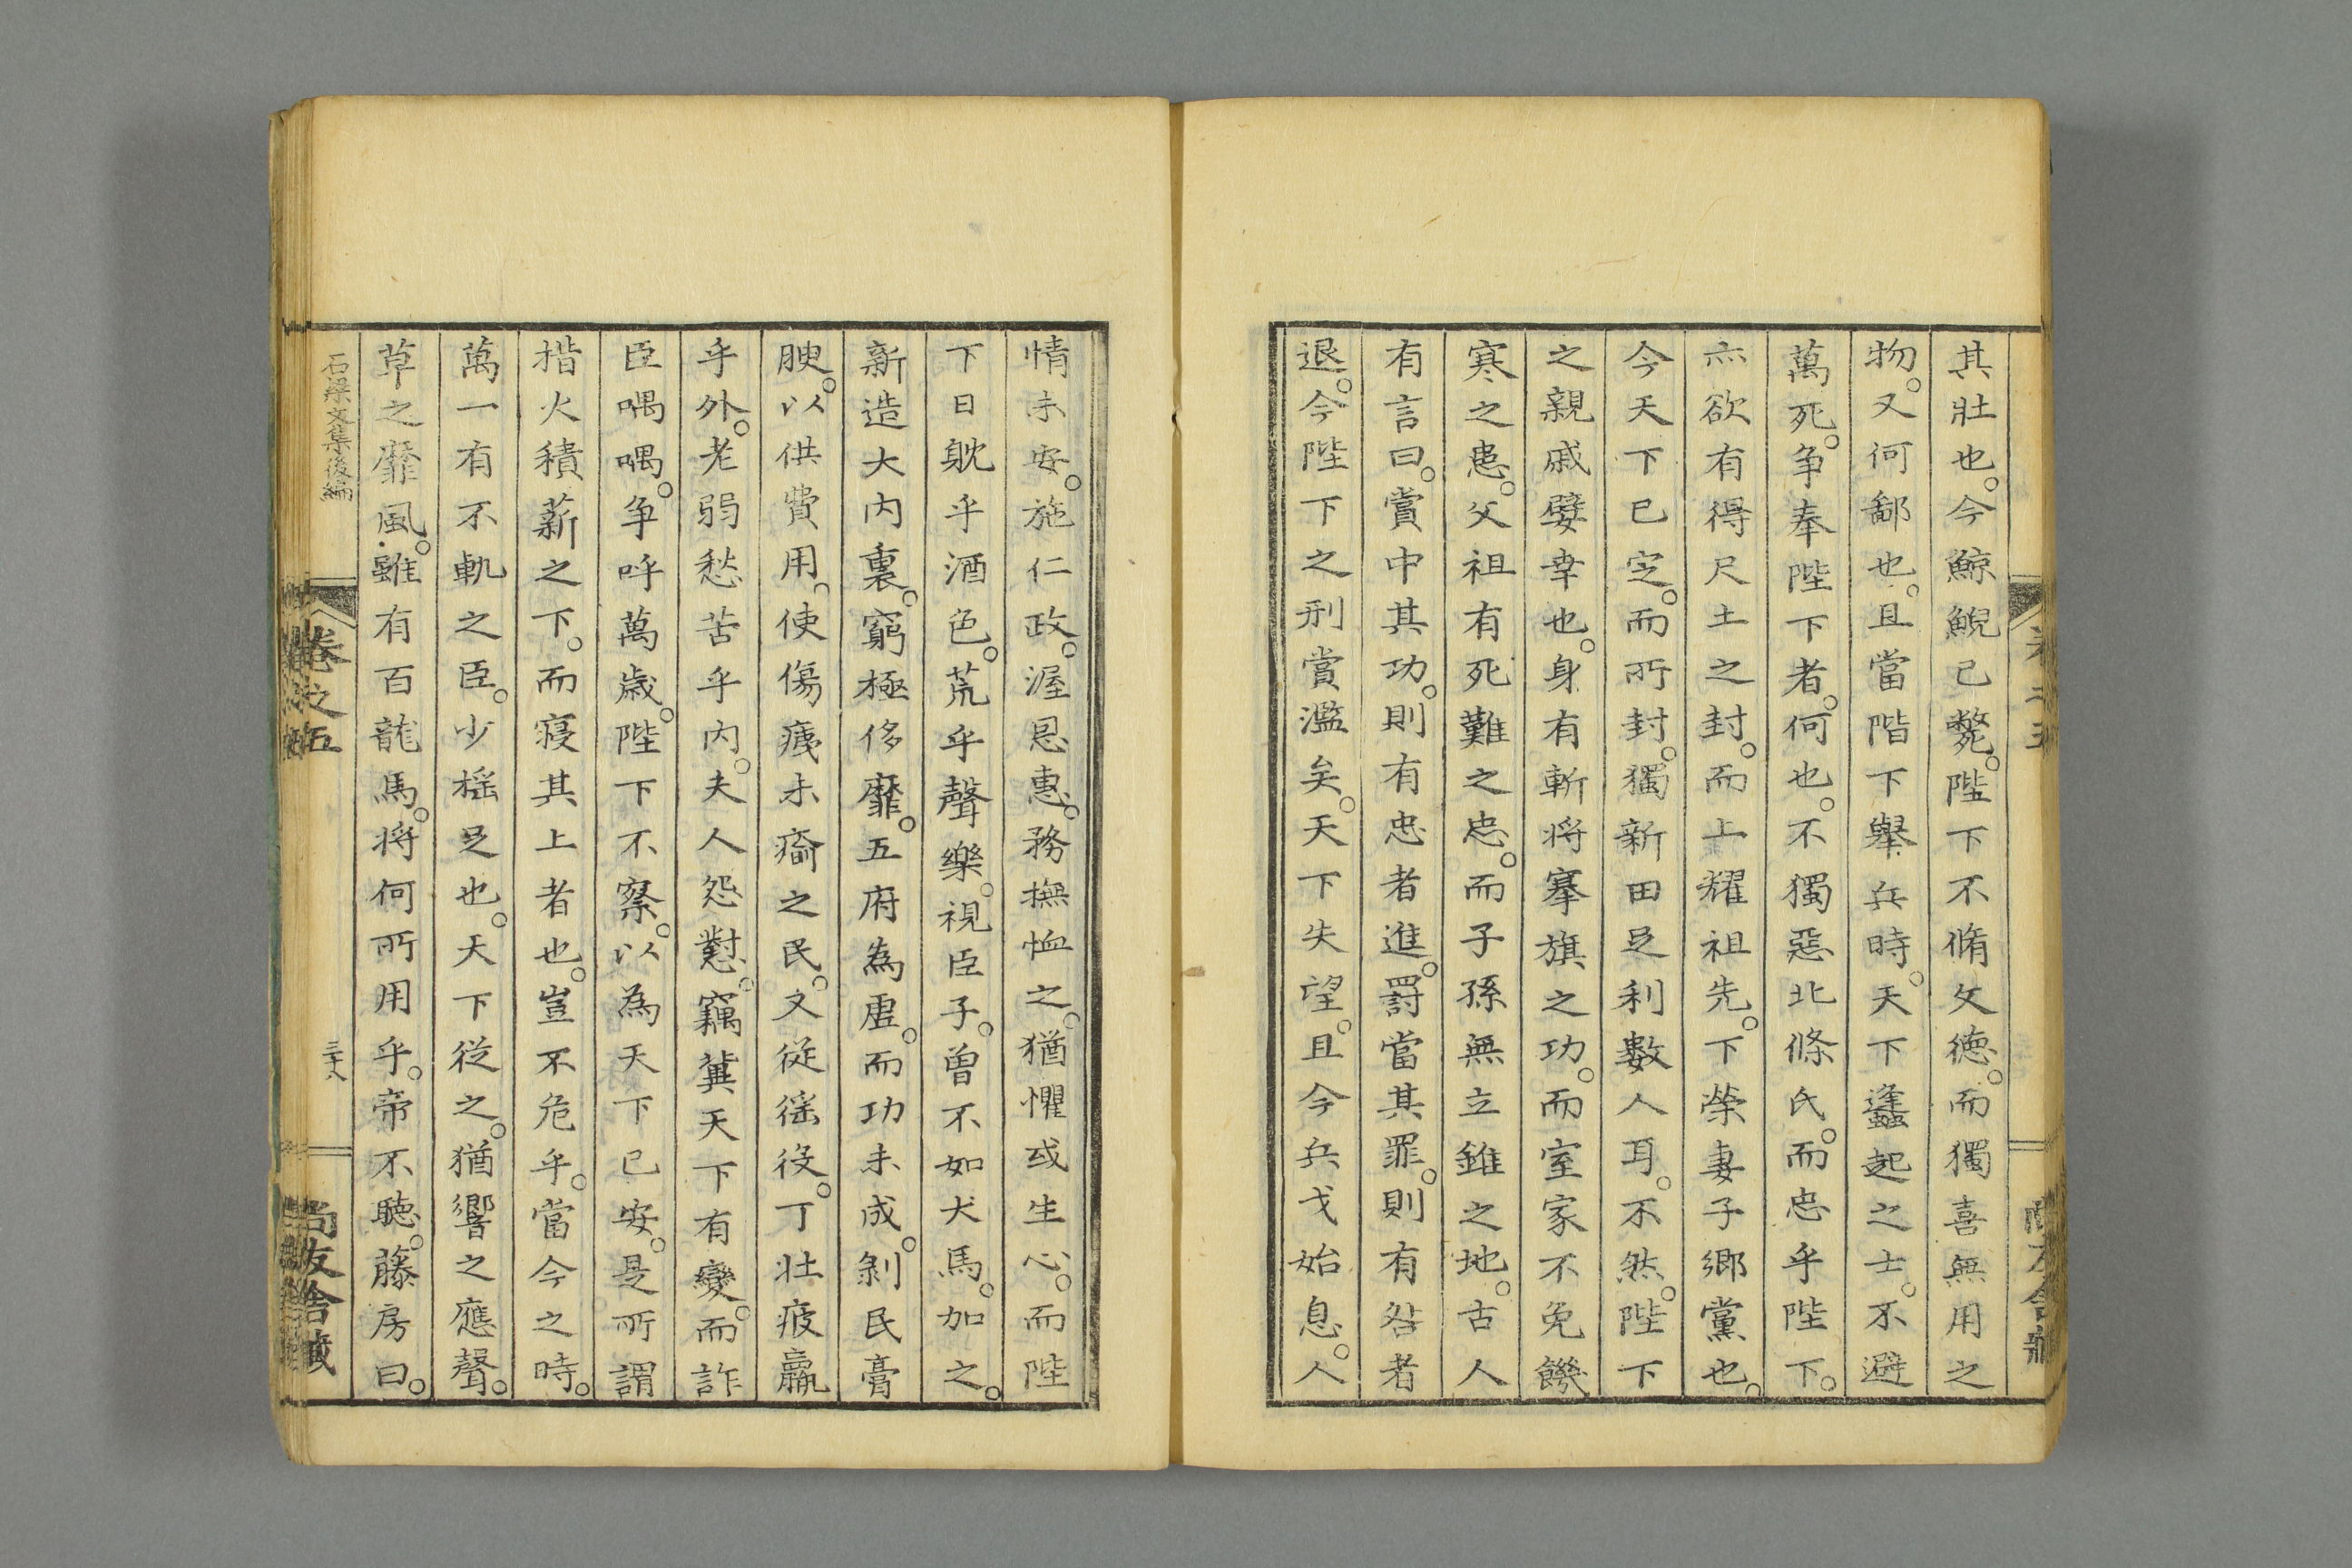 其壯也。今鯨鯢已斃。陛下不脩文德。而獨喜無用之
物。又何鄙也。且當階下舉兵時。天下蠭起之士。不避
萬死。争奉陛下者。何也。不獨惡北條氏。而忠乎陛下。
亦欲有得尺土之封。而上耀祖先。下榮妻子鄉黨也。
今天下已定。而所封。獨新田足利數人耳。不然。陛下
之親戚嬖幸也。身有斬將搴旗之功。而室家不免饑
寒之患。父祖有死難之忠。而子孫無立錐之地。古人
有言曰。賞中其功。則有忠者進。罰當其罪。則有咎者
退。今陛下之刑賞濫矣。天下失望。且今兵戈始息。人
情未安。施仁政。渥恩惠。務撫恤之。猶懼或生心。而陛
下日躭乎酒色。荒乎聲樂。視臣子。曾不如犬馬。加之。
新造大內裏。窮極侈靡。五府為虛。而功未成。剝民膏
腴。以供費用。使傷痍未瘉之民。又從徭役。丁壯疲羸
乎外。老弱愁苦乎內。夫人怨懟。竊冀天下有變。而詐
臣喁喁。争呼萬歲。陛下不察。以為天下已安。是所謂
措火積薪之下。而寢其上者也。豈不危乎。當今之時。
萬一有不軌之臣。少搖足也。天下從之。猶響之應聲。
草之靡風。雖有百龍馬。將何所用乎。帝不聽。藤房曰。
石梁文集後編
卷之五
三十八
尚友舍藏